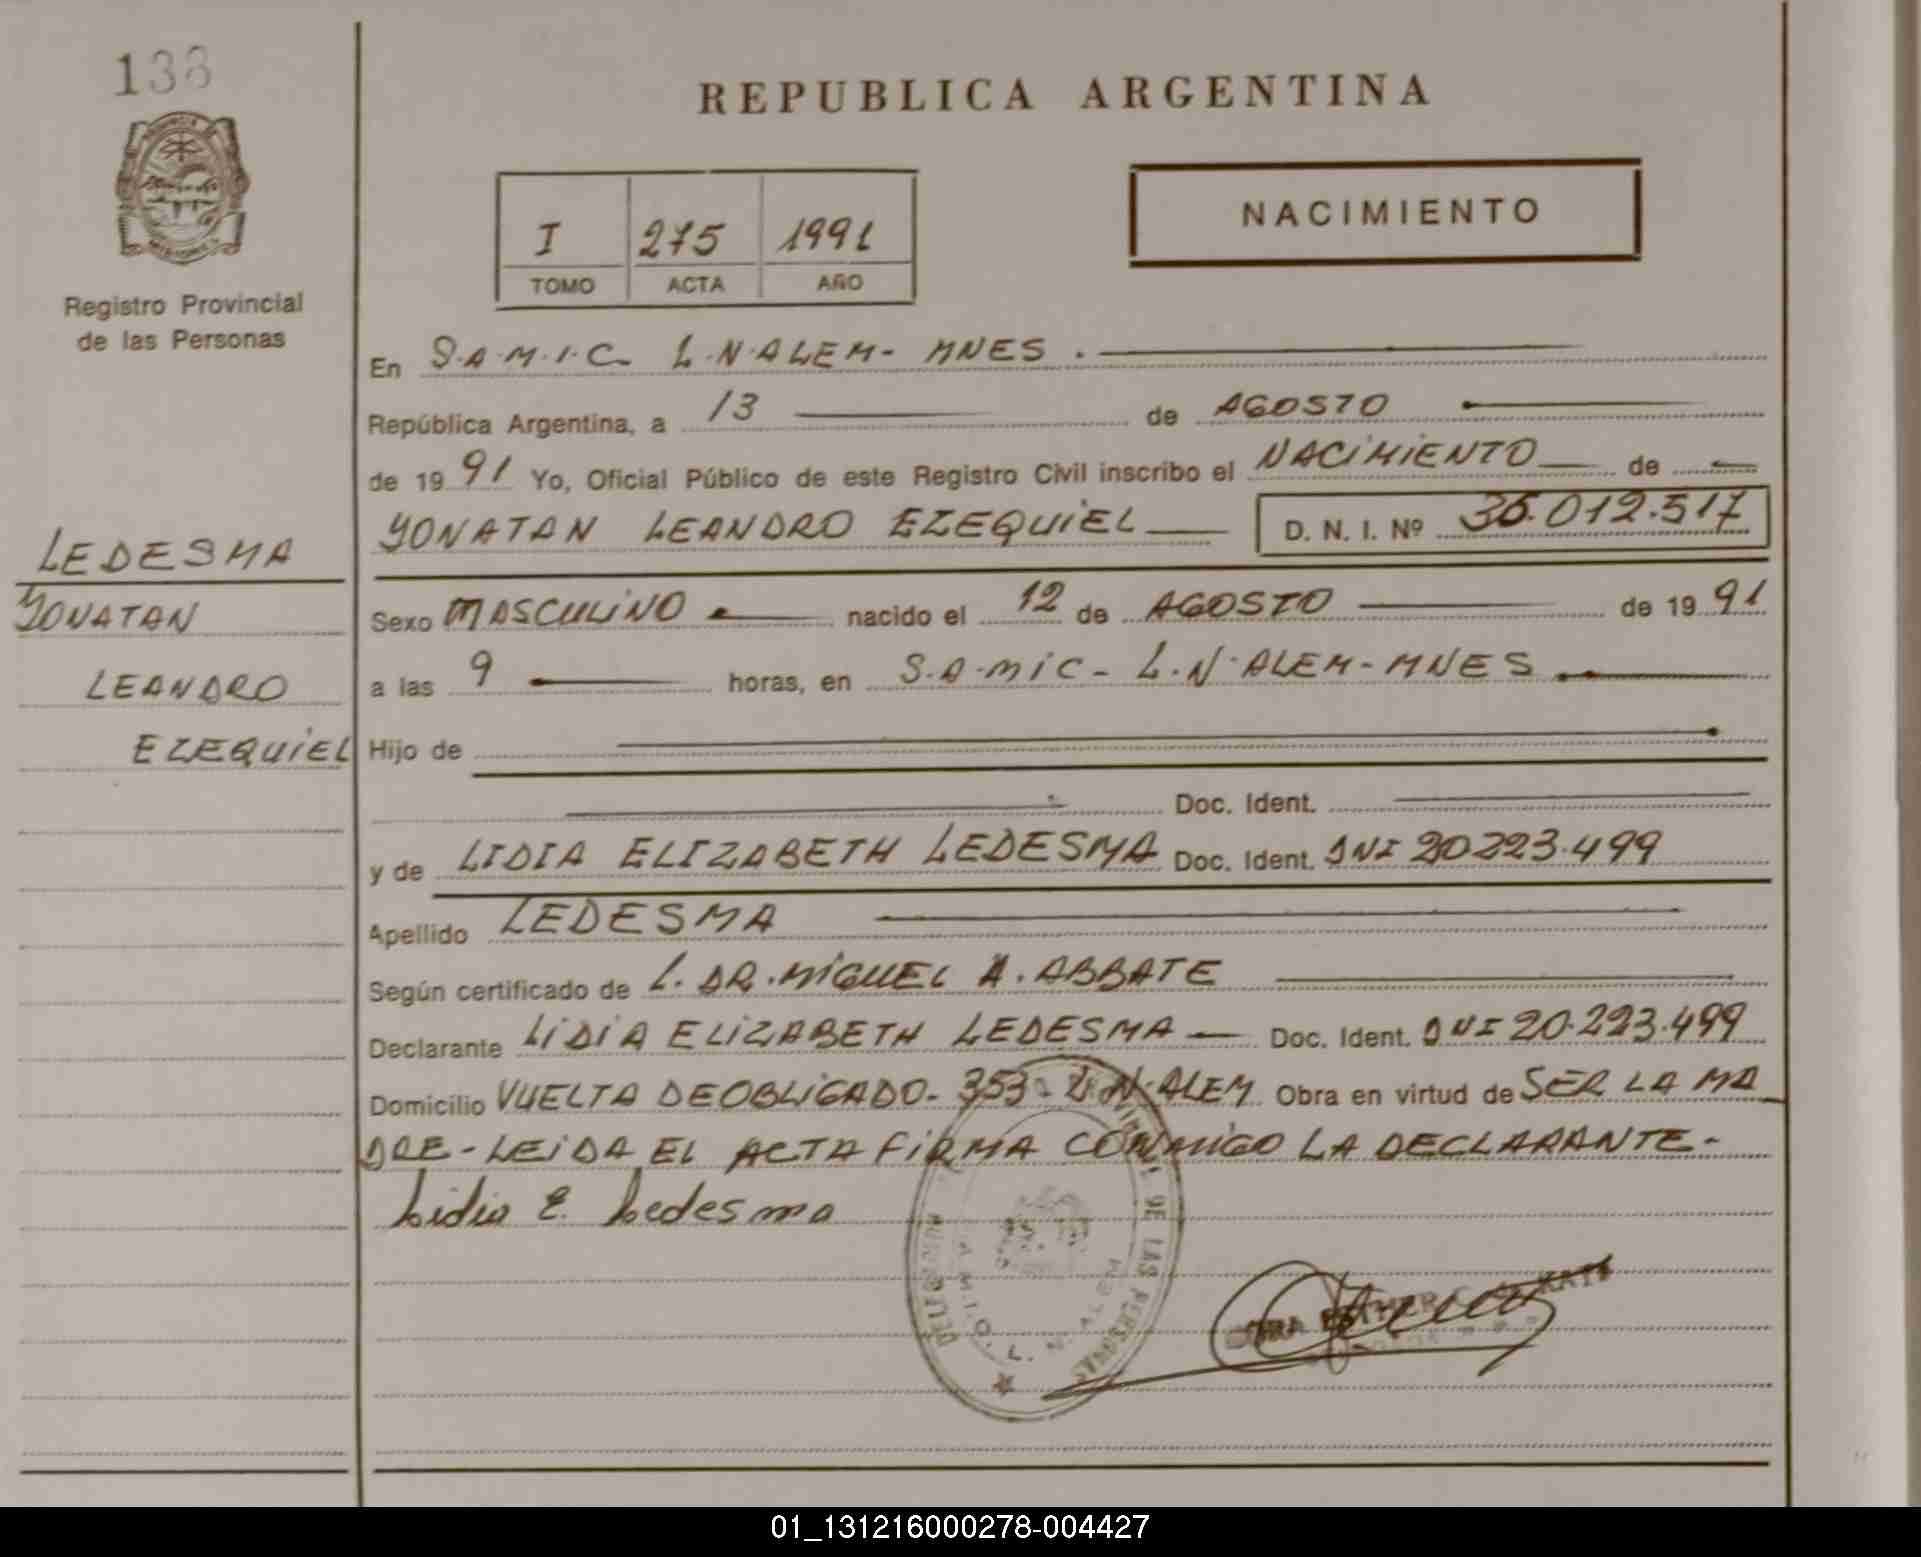 138
REPUBLICA ARGENTINA
NACIMIENTO
I 275 1991
TOMO ACTA AÑO
Registro Provincial
de las Personas
En S.A.M.I.C- L.N.ALEM- MNES.
República Argentina, a 13 de AGOSTO
de 1991 Yo, Oficial Público de este Registro Civil inscribo el NACIMIENTO de
YONATAN LEANDRO EZEQUIEL D. N. I. Nº 36.012.517
LEDESMA
YONATAN
LEANDRO
EZEQUIEL
Sexo MASCULINO nacido el 12 de AGOSTO de 1991
a las 9 horas, en S.A.MIC- L.N.ALEM-MNES
Hijo de
Doc. Ident.
y de LIDIA ELIZABETH LEDESMA Doc. Ident. DNI 20223.499
Apellido LEDESMA
Según certificado de L. DR.MIGUEL A. ABBATE
Declarante LIDIA ELIZABETH LEDESMA Doc. Ident. DNI 20.223.499
Domicilio VUELTA DEOBLIGADO- 353- L.N.ALEM Obra en virtud de SER LA MA
DRE-LEIDA EL ACTA FIRMA CONMIGO LA DECLARANTE-
Lidia E. Ledesma
DE LAS PERSONAS
01_131216000278-004427